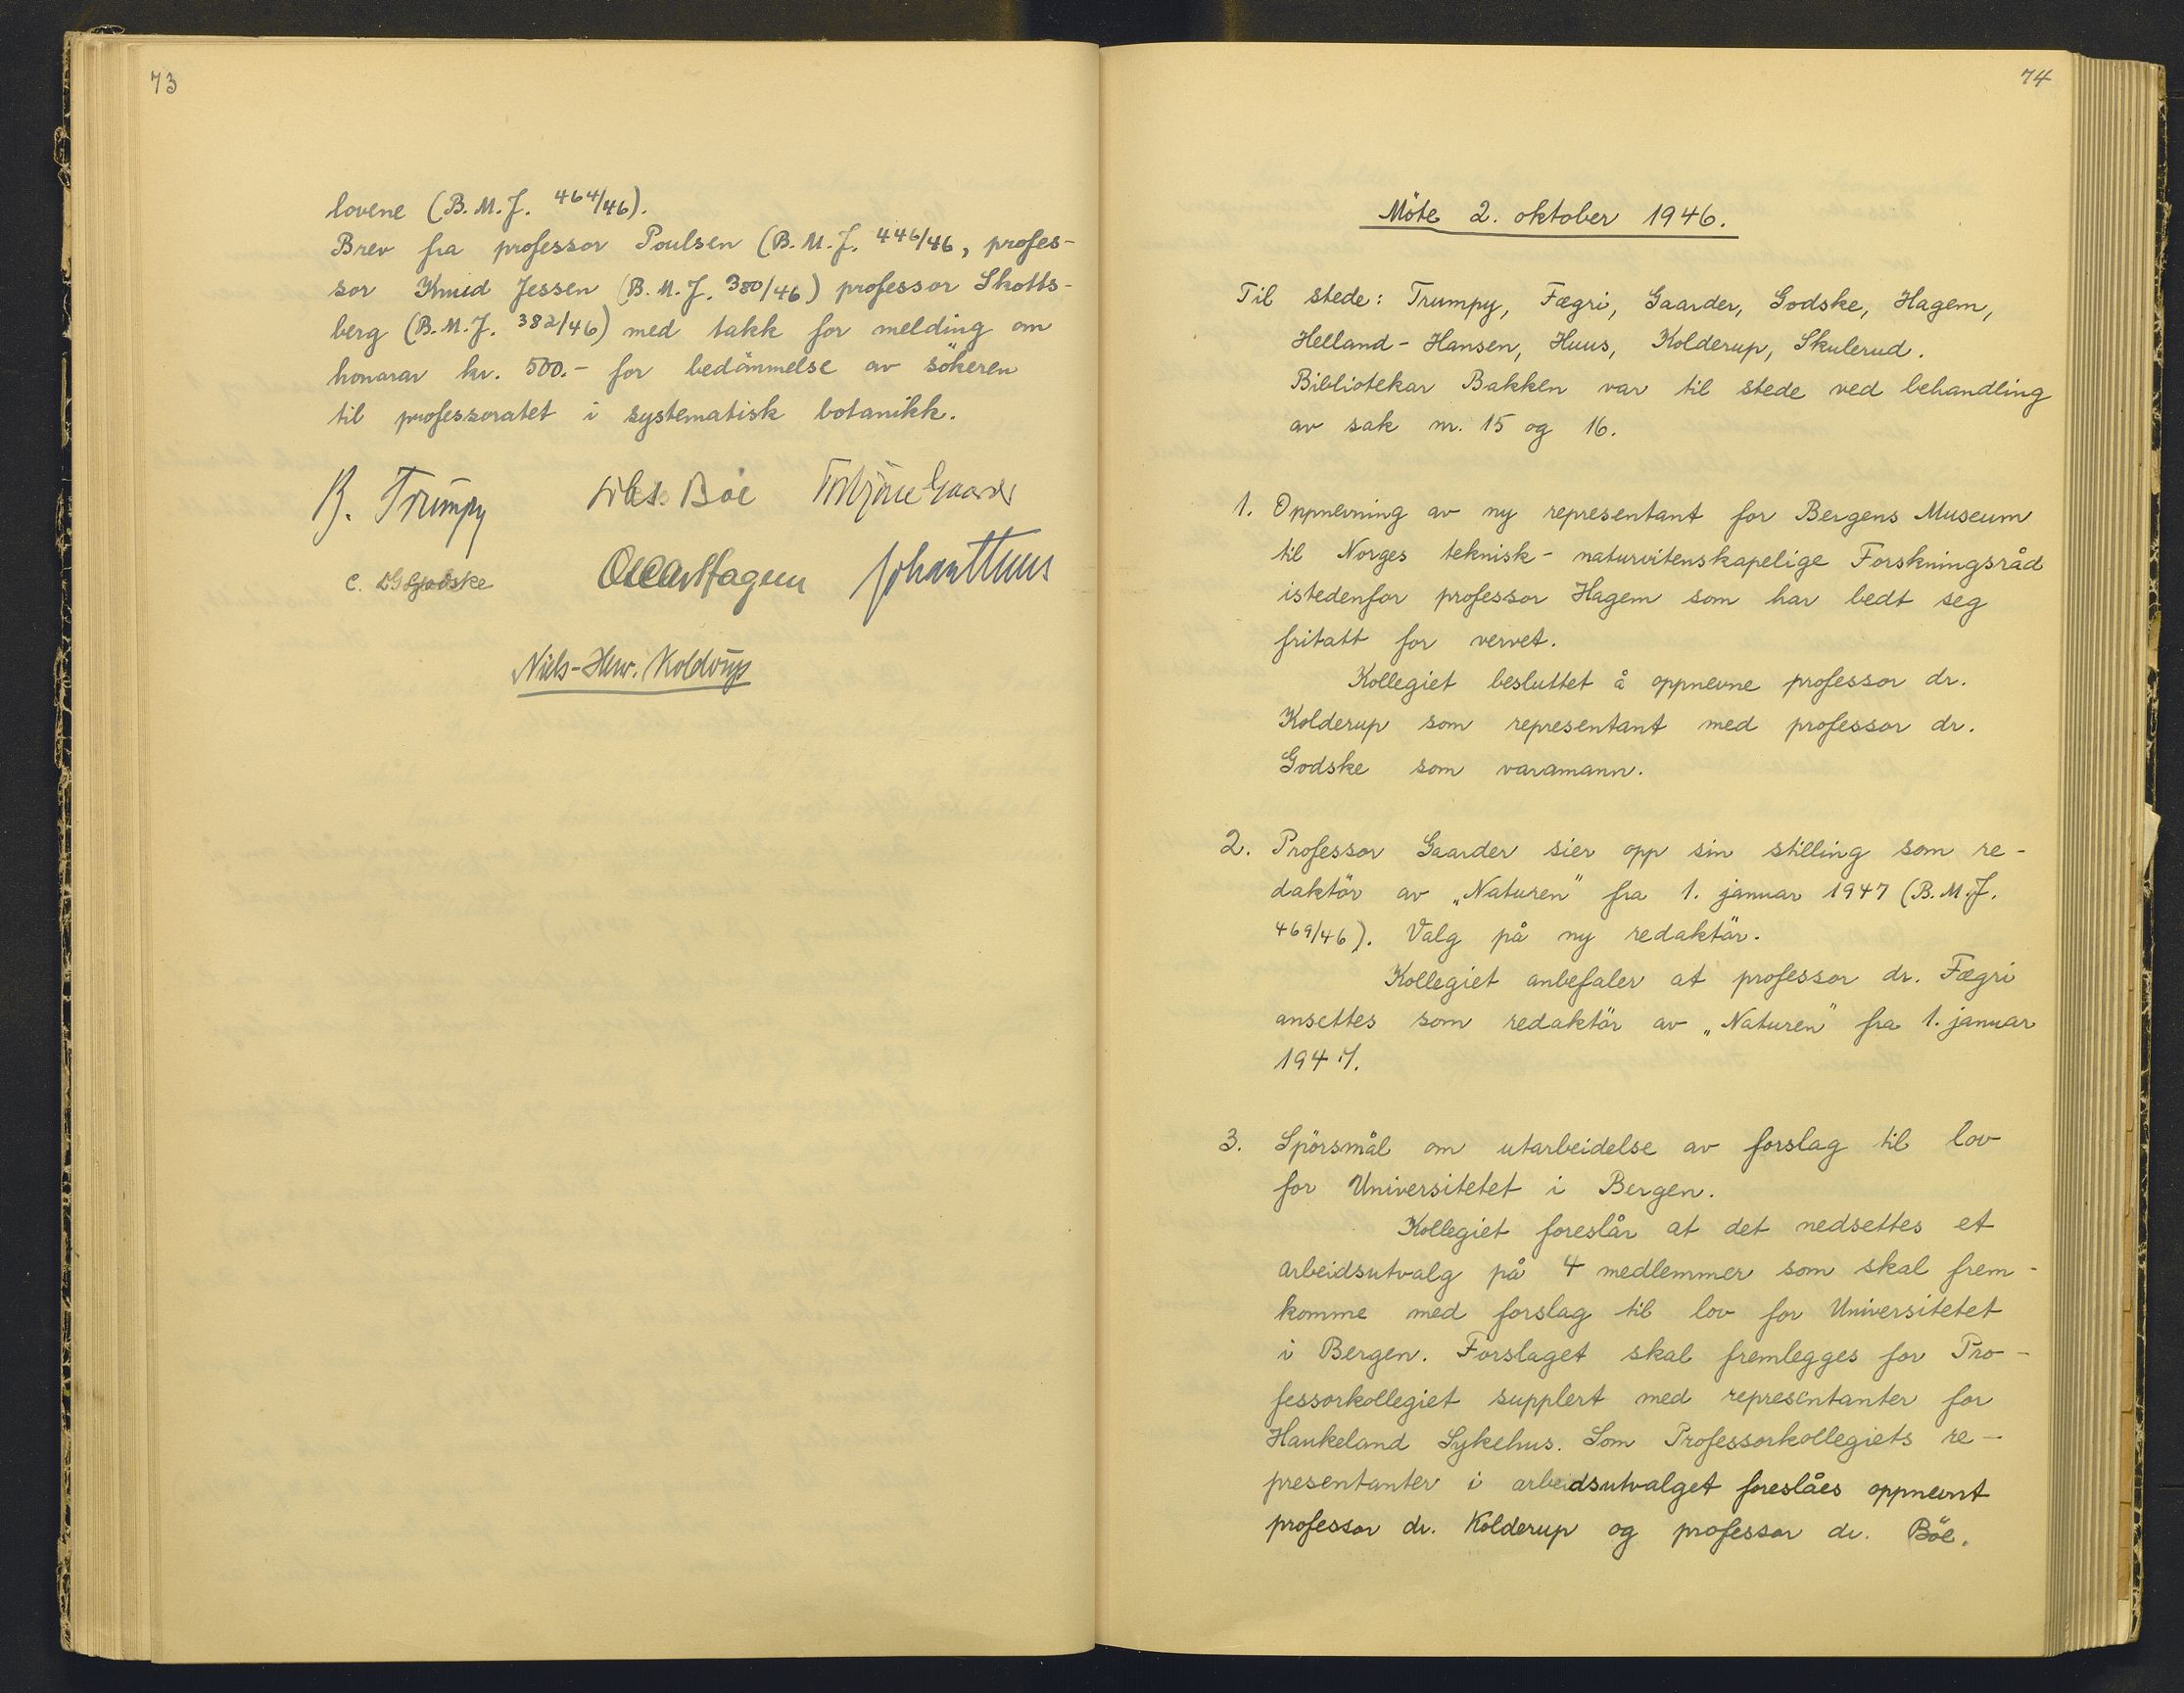 73
lovene (B.M.J. 464/46).
Brev fra professor Poulsen (B.M.J. 446/46, profes-
sor Knud Jessen (B.M.J. 380/46) professor Skotts-
berg (B.M.J. 382/46) med takk for melding om
honorar kr. 500.- for bedömmelse av sökeren
til professoratet i systematisk botanikk.
B. Trumpy Böe Torbjörn Gaarder
C. L. Godske Oscar Hagem Johan Huus
Niels-Henr. Kolderup
74
Möte 2. oktober 1946.
Til stede: Trumpy, Fægri, Gaarder, Godske, Hagem,
Helland-Hansen, Huus, Kolderup, Skulerud.
Bibliotekar Bakken var til stede ved behandling
av sak nr. 15 og 16.
1. Oppnevning av ny representant for Bergens Museum
til Norges teknisk-naturvitenskapelige Forskningsråd
istedenfor professor Hagem som har bedt seg
fritatt for vervet.
Kollegiet besluttet å oppnevne professor dr.
Kolderup som representant med professor dr.
Godske som varamann.
2. Professor Gaarder sier opp sin stilling som re-
daktör av „Naturen" fra 1. januar 1947 (B.M.J.
469/46). Valg på ny redaktör.
Kollegiet anbefaler at professor dr. Fægri
ansettes som redaktör av „Naturen" fra 1. januar
1947.
3. Spörsmål om utarbeidelse av forslag til lov
for Universitetet i Bergen.
Kollegiet foreslår at det nedsettes et
arbeidsutvalg på 4 medlemmer som skal frem-
komme med forslag til lov for Universitetet
i Bergen. Forslaget skal fremlegges for Pro-
fessorkollegiet supplert med representanter for
Haukeland Sykehus. Som Professorkollegiets re-
presentanter i arbeidsutvalget foreslåes oppnevnt
professor dr. Kolderup og professor dr. Böe.